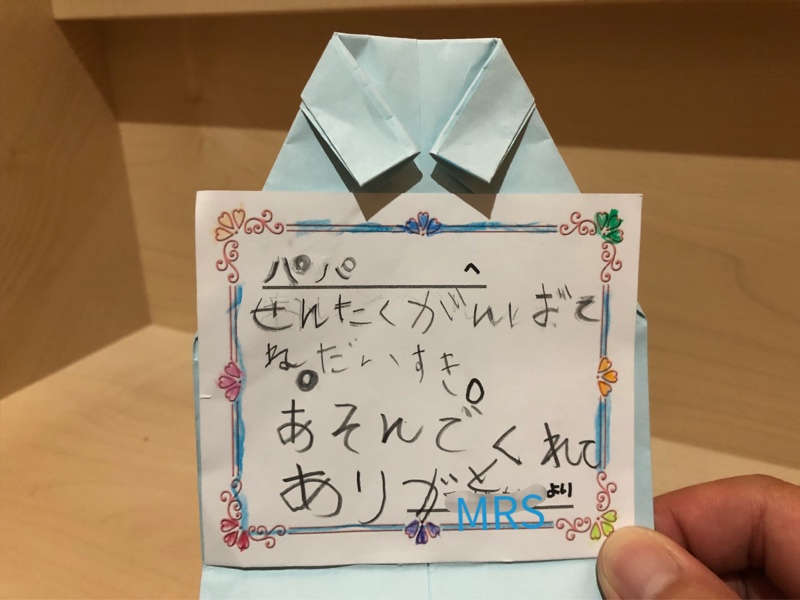 パパ へ
せんたくがんばて
ねだいすき。
あそんでくれて
ありがと
MRS より